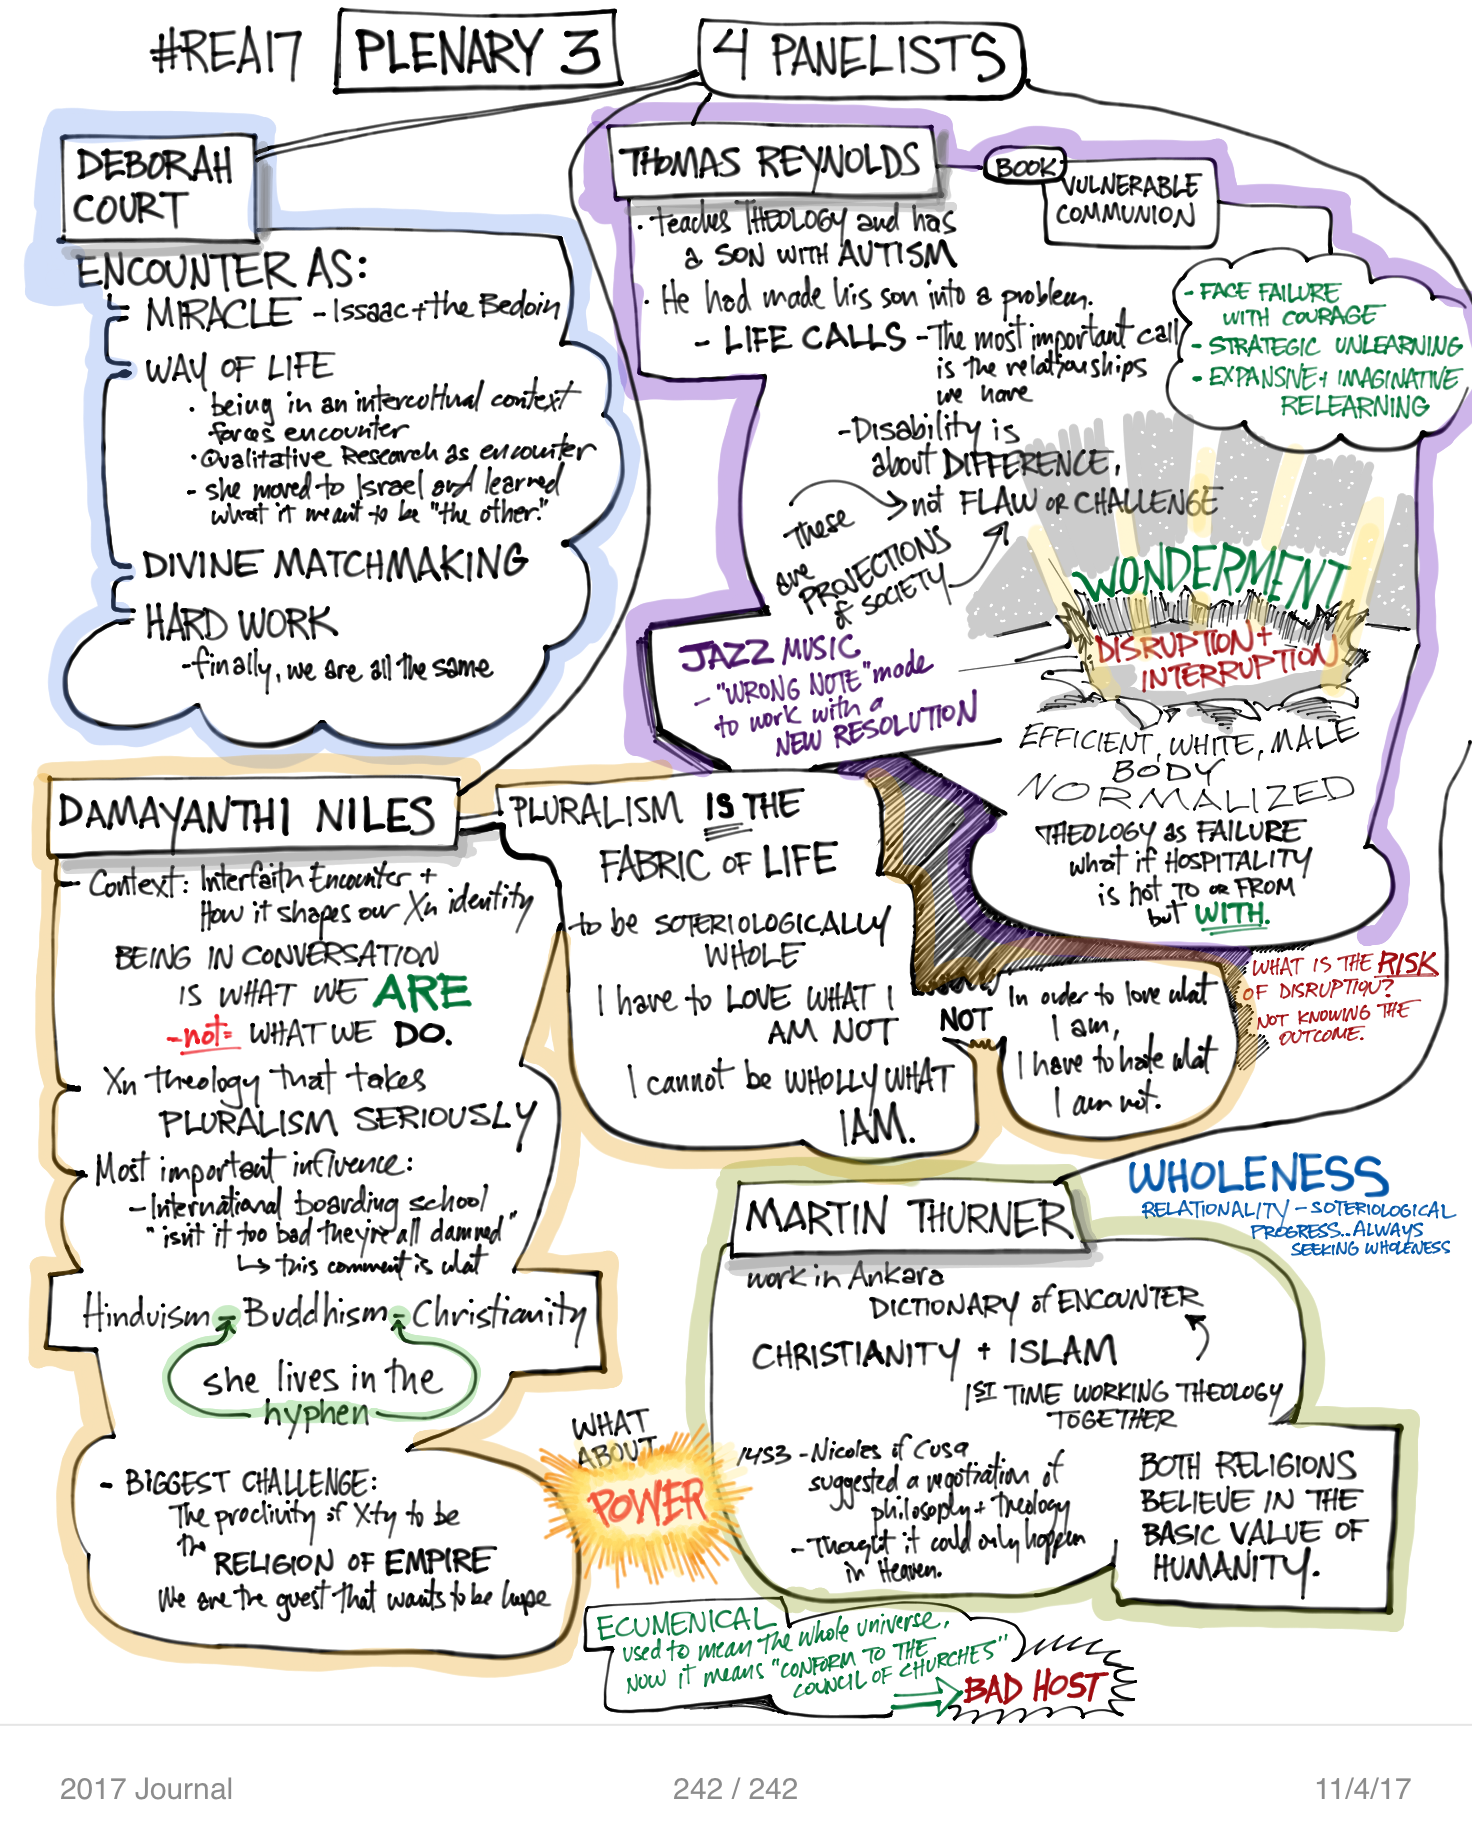 #REA17 PLENARY 3
4 PANELISTS
DEBORAH
COURT
ENCOUNTER AS:
MIRACLE - Issaac + the Bedoin
WAY OF LIFE
· being in an intercultural context
forces encounter
· Qualitative Research as encounter
- she moved to Israel and learned
what it meant to be "the other."
DIVINE MATCHMAKING
HARD WORK
- finally, we are all the same
THOMAS REYNOLDS
BOOK
VULNERABLE
COMMUNION
· teaches THEOLOGY and has
a SON WITH AUTISM
· He had made his son into a problem.
- LIFE CALLS - The most important call
is the relationships
we have
- Disability is
about DIFFERENCE,
not FLAW OR CHALLENGE
These
are
PROJECTIONS
of SOCIETY
- FACE FAILURE
WITH COURAGE
- STRATEGIC UNLEARNING
- EXPANSIVE + IMAGINATIVE
RELEARNING
WONDERMENT
DISRUPTION +
INTERRUPTION
JAZZ MUSIC
- "WRONG NOTE" made
to work with a
NEW RESOLUTION
EFFICIENT, WHITE, MALE
BODY
NORMALIZED
THEOLOGY as FAILURE
what if HOSPITALITY
is not TO OR FROM
but WITH.
WHAT IS THE RISK
OF DISRUPTION?
NOT KNOWING THE
OUTCOME.
DAMAYANTHI NILES
- Context: Interfaith Encounter +
How it shapes our Xn identity
BEING IN CONVERSATION
IS WHAT WE ARE
- not = WHAT WE DO.
Xn theology that takes
PLURALISM SERIOUSLY
Most important influence:
- International boarding school
"isn't it too bad they're all damned"
↳ this comment is what
Hinduism - Buddhism - Christianity
she lives in the
hyphen
- BIGGEST CHALLENGE:
The proclivity of Xty to be
the
RELIGION OF EMPIRE
We are the guest that wants to be
PLURALISM IS THE
FABRIC OF LIFE
to be SOTERIOLOGICALLY
WHOLE
I have to LOVE WHAT I
AM NOT
I cannot be WHOLLY WHAT
I AM.
NOT
In order to love what
I am,
I have to hate what
I am not.
WHAT
ABOUT
POWER
MARTIN THURNER
work in Ankara
DICTIONARY of ENCOUNTER
CHRISTIANITY + ISLAM
1ST TIME WORKING THEOLOGY
TOGETHER
1453 - Nicoles of Cusa
suggested a negotiation of
philosophy + theology
- Thought it could only happen
in Heaven.
BOTH RELIGIONS
BELIEVE IN THE
BASIC VALUE OF
HUMANITY.
WHOLENESS
RELATIONALITY - SOTERIOLOGICAL
PROGRESS... ALWAYS
SEEKING WHOLENESS
ECUMENICAL
used to mean the whole universe,
NOW it means "CONFORM TO THE
COUNCIL OF CHURCHES"
BAD HOST
2017 Journal
242 / 242
11/4/17